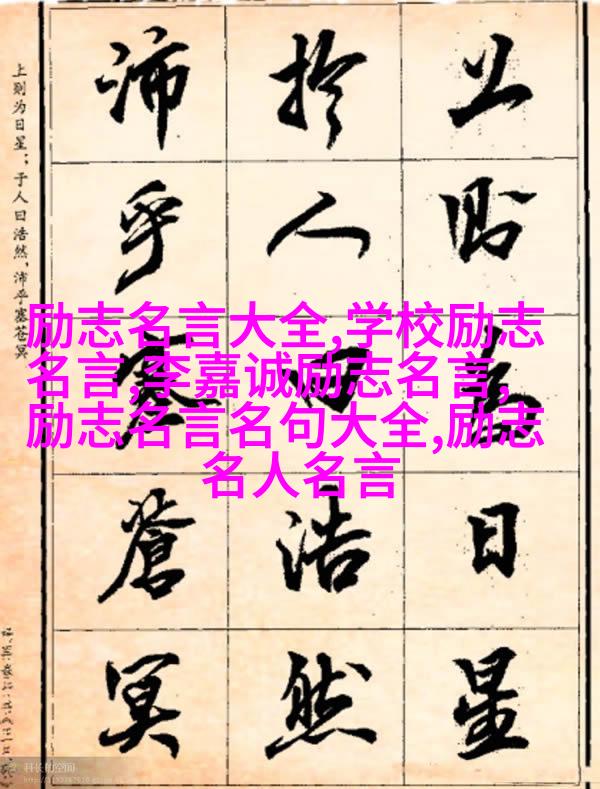 上則為日星
於人曰浩然
沛乎塞蒼冥
上则为日星；于人曰浩然，沛乎塞苍冥
励志名言大全,学校励志
名言,李嘉诚励志名言,
励志名言名句大全,励志
名人名言
科长的空间